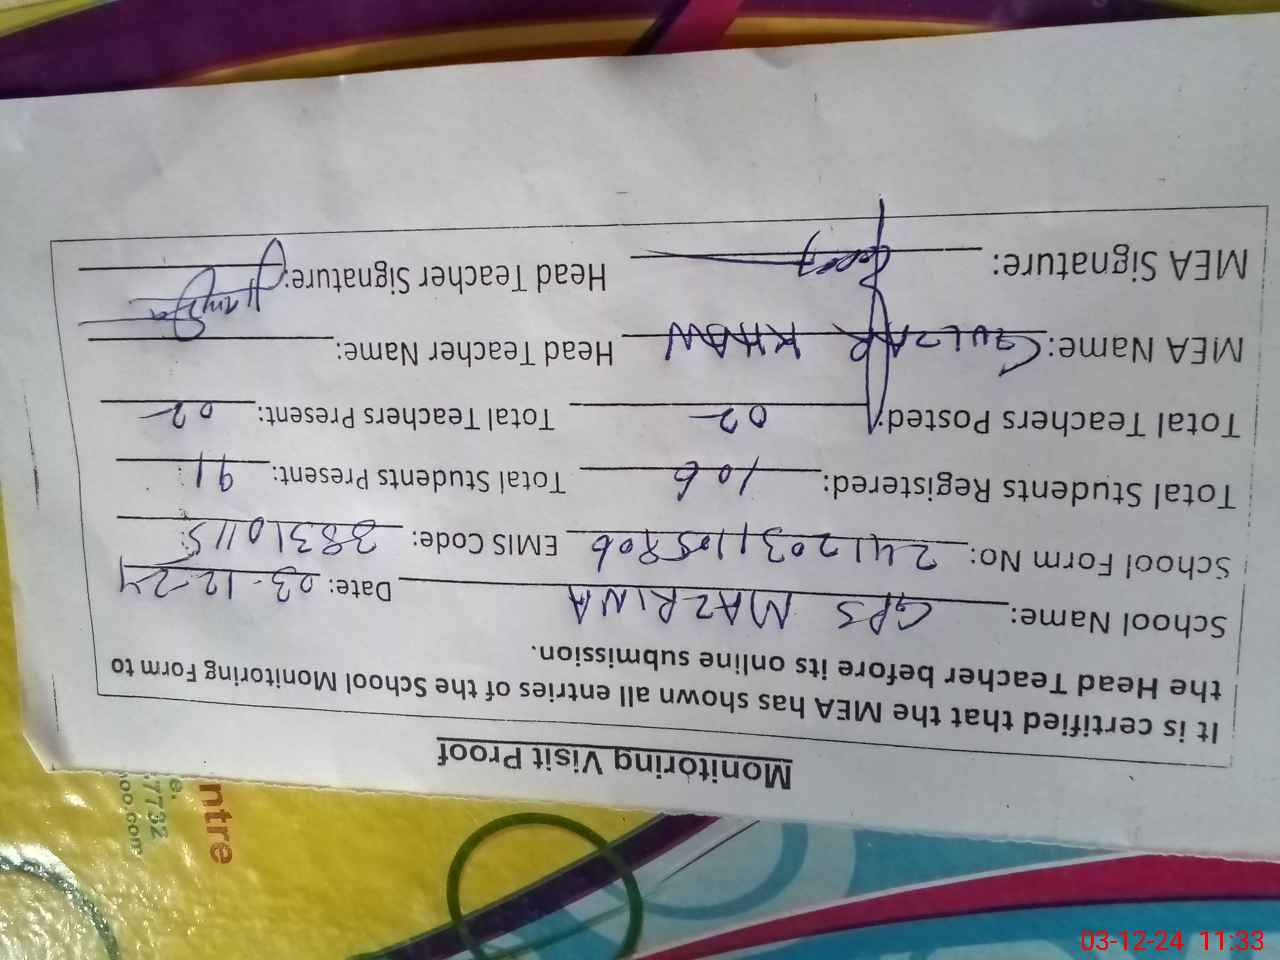 Monitoring Visit Proof
It is certified that the MEA has shown all entries of the School Monitoring Form to
the Head Teacher before its online submission.
School Name: GPS MAZRINA Date: 03-12-24
School Form No: 2412031105806 EMIS Code: 38310115
Total Students Registered: 106 Total Students Present: 91
Total Teachers Posted: 02 Total Teachers Present: 02
MEA Name: GULZAR KHAN Head Teacher Name:
MEA Signature: Head Teacher Signature:
ntre
7732
oo.com
03-12-24 11:33